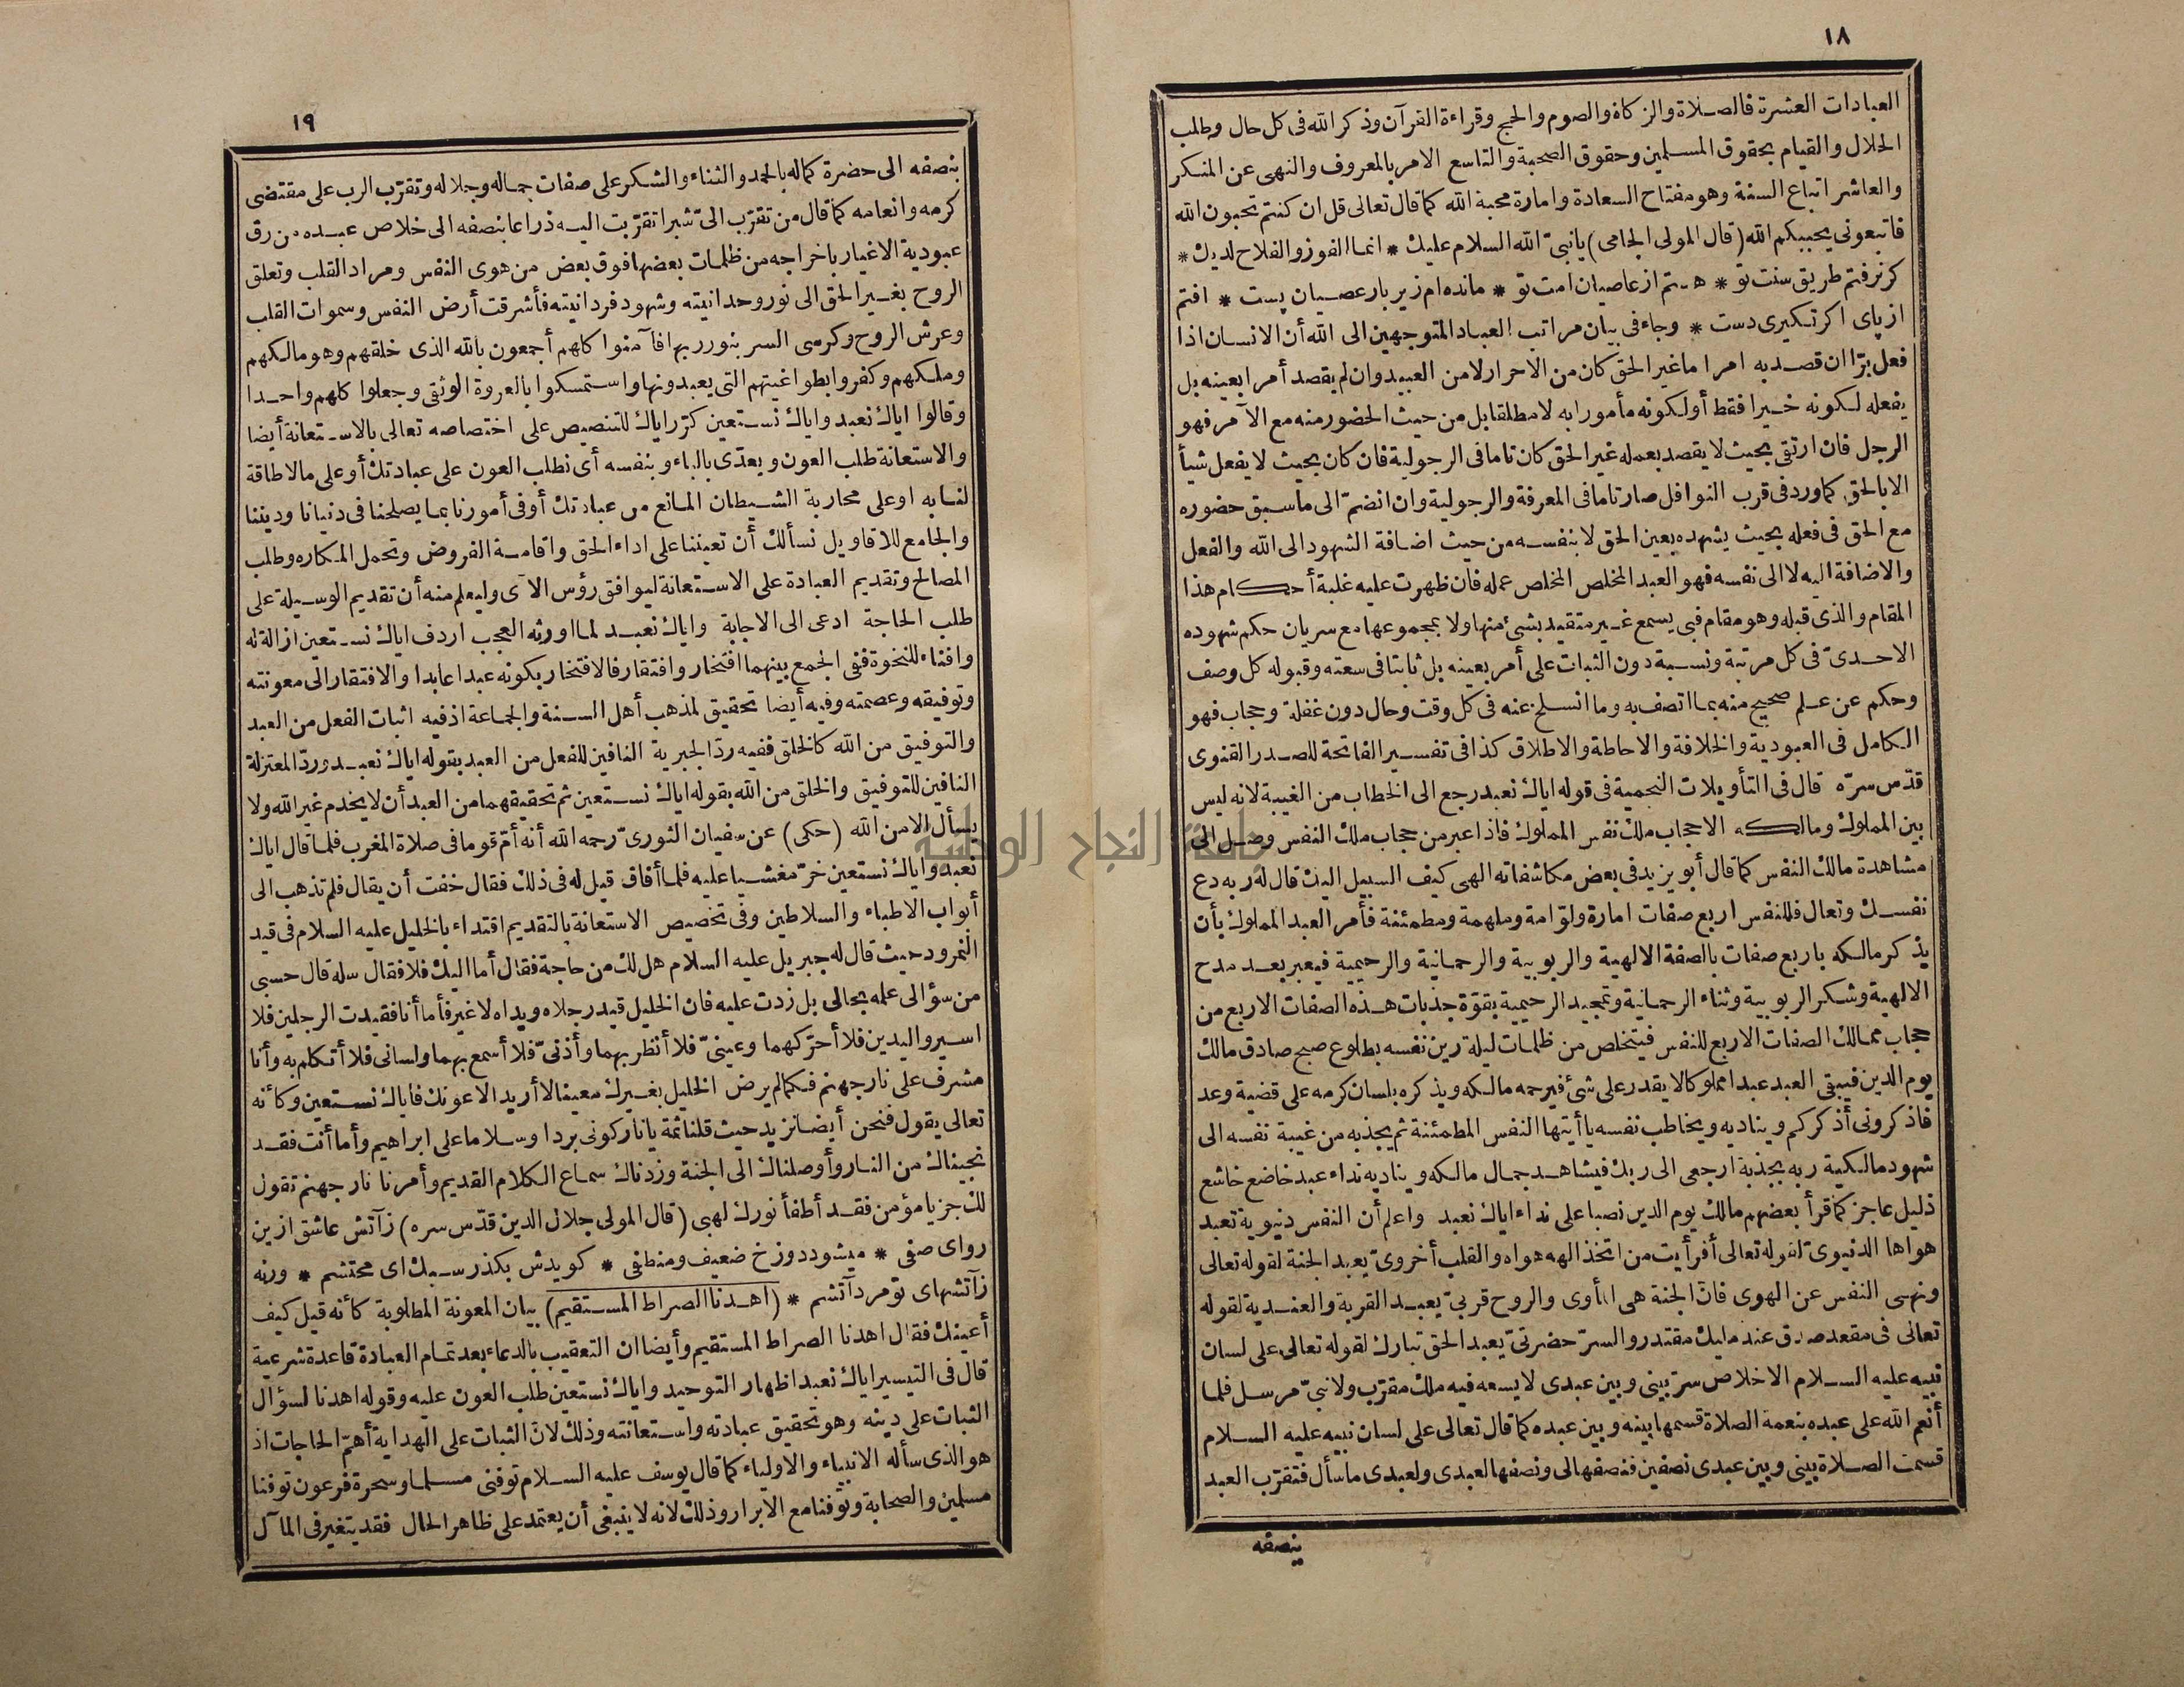 ١٨
العبادات العشرة فالصلاة والزكاة والصوم والحج وقراءة القرآن وذكر الله فى كل حال وطلب
الحلال والقيام بحقوق المسلمين وحقوق الصحبة والتاسع الامر بالمعروف والنهى عن المنكر
والعاشر اتباع السنة وهو مفتاح السعادة وامارة محبة الله كما قال تعالى قل ان كنتم تحبون الله
فاتبعونى يحببكم الله (قال المولى الجامى) يانبىّ الله السلام عليك * انما الفوز والفلاح لديك *
كرنرفتم طريق سنت تو * هستم از عاصيان امت تو * مانده ام زير بار عصيان پست * افتم
از پاى اكر نكيرى دست * وجاء فى بيان مراتب العباد المتوجهين الى الله أن الانسان اذا
فعل برّا ان قصد به امرا ما غير الحق كان من الاحرار لا من العبيد وان لم يقصد أمرا بعينه بل
يفعله لكونه خيرا فقط أو لكونه مأمورا به لا مطلقا بل من حيث الحضور منه مع الآمر فهو
الرجل فان ارتقى بحيث لا يقصد بعمله غير الحق كان تاما فى الرجولية فان كان بحيث لا يفعل شيأ
الا بالحق كما ورد فى قرب النوافل صار تاما فى المعرفة والرجولية وان انضمّ الى ما سبق حضوره
مع الحق فى فعله بحيث يشهده بعين الحق لا بنفسه من حيث اضافة الشهود الى الله والفعل
والاضافة اليه لا الى نفسه فهو العبد المخلص المخلص عمله فان ظهرت عليه غلبة أحكام هذا
المقام والذى قبله وهو مقام فبى يسمع غير متقيد بشئ منها ولا بمجموعها مع سريان حكم شهوده
الاحدىّ فى كل مرتبة ونسبة دون الثبات على أمر بعينه بل ثابتا فى سعته وقبوله كل وصف
وحكم عن علم صحيح منه بما اتصف به وما انسلخ عنه فى كل وقت وحال دون غفلة وحجاب فهو
الكامل فى العبودية والخلافة والاحاطة والاطلاق كذا فى تفسير الفاتحة للصدر القنوى
قدّس سرّه قال فى التأويلات النجمية فى قوله اياك نعبد رجع الى الخطاب من الغيبة لانه ليس
بين المملوك ومالكه الا حجاب ملك نفس المملوك فاذا عبر من حجاب ملك النفس وصل الى
مشاهدة مالك النفس كما قال أبو يزيد فى بعض مكاشفاته الهى كيف السبيل اليك قال له ربه دع
نفسك وتعال فللنفس اربع صفات امارة ولوّامة وملهمة ومطمئنة فأمر العبد المملوك بأن
يذكر مالكه باربع صفات بالصفة الالهية والربوبية والرحمانية والرحيمية فيعبر بعد مدح
الالهية وشكر الربوبية وثناء الرحمانية وتمجيد الرحيمية بقوّة جذبات هذه الصفات الاربع من
حجاب ممالك الصفات الاربع للنفس فيتخلص من ظلمات ليلة رين نفسه بطلوع صبح صادق مالك
يوم الدين فيبقى العبد عبدا مملوكا لا يقدر على شئ فيرحمه مالكه ويذكره بلسان كرمه على قضية وعد
فاذكرونى أذكركم ويناديه ويخاطب نفسه ياأيتها النفس المطمئنة ثم يجذبه من غيبة نفسه الى
شهود مالكية ربه بجذبة ارجعى الى ربك فيشاهد جمال مالكه ويناديه نداء عبد خاضع خاشع
ذليل عاجز كما قرأ بعضهم مالك يوم الدين نصبا على نداء اياك نعبد واعلم أن النفس دنيوية تعبد
هواها الدنيوىّ لقوله تعالى أفرأيت من اتخذ الهه هواه والقلب أخروىّ يعبد الجنة لقوله تعالى
ونهى النفس عن الهوى فانّ الجنة هى المأوى والروح قربىّ يعبد القربة والعندية لقوله
تعالى فى مقعد صدق عند مليك مقتدر والسرّ حضرتىّ يعبد الحق تبارك لقوله تعالى على لسان
نبيه عليه السلام الاخلاص سرّ بينى وبين عبدى لا يسعه فيه ملك مقرّب ولا نبىّ مرسل فلما
أنعم الله على عبده بنعمة الصلاة قسمها بينه وبين عبده كما قال تعالى على لسان نبيه عليه السلام
قسمت الصلاة بينى وبين عبدى نصفين فنصفها لى ونصفها لعبدى ولعبدى ما سأل فتقرّب العبد
بنصفه
١٩
بنصفه الى حضرة كماله بالحمد والثناء والشكر على صفات جماله وجلاله وتقرّب الرب على مقتضى
كرمه وانعامه كما قال من تقرّب الىّ شبرا تقرّبت اليه ذراعا بنصفه الى خلاص عبده من رق
عبودية الاغيار باخراجه من ظلمات بعضها فوق بعض من هوى النفس ومراد القلب وتعلق
الروح بغير الحق الى نور وحدانيته وشهود فردانيته فأشرقت أرض النفس وسموات القلب
وعرش الروح وكرسى السر بنور ربها فآمنوا كلهم أجمعون بالله الذى خلقهم وهو مالكهم
وملكهم وكفروا بطواغيتهم التى يعبدونها واستمسكوا بالعروة الوثقى وجعلوا كلهم واحدا
وقالوا اياك نعبد واياك نستعين كرّر اياك للتنصيص على اختصاصه تعالى بالاستعانة أيضا
والاستعانة طلب العون ويعدّى بالباء وبنفسه أى نطلب العون على عبادتك أو على ما لا طاقة
لنا به او على محاربة الشيطان المانع من عبادتك أو فى أمورنا بما يصلحنا فى دنيانا وديننا
والجامع للاقاويل نسألك أن تعيننا على اداء الحق واقامة الفروض وتحمل المكاره وطلب
المصالح وتقديم العبادة على الاستعانة ليوافق رؤس الآى وليعلم منه أن تقديم الوسيلة على
طلب الحاجة ادعى الى الاجابة واياك نعبد لما اورثه العجب اردف اياك نستعين ازالة له
وافناء للنخوة ففى الجمع بينهما افتخار وافتقار فالافتخار بكونه عبدا عابدا والافتقار الى معونته
وتوفيقه وعصمته وفيه أيضا تحقيق لمذهب أهل السنة والجماعة اذ فيه اثبات الفعل من العبد
والتوفيق من الله كالخلق ففيه ردّ الجبرية النافين للفعل من العبد بقوله اياك نعبد وردّ المعتزلة
النافين للتوفيق والخلق من الله بقوله اياك نستعين ثم تحقيقهما من العبد أن لا يخدم غير الله ولا
يسأل الا من الله (حكى) عن سفيان الثورىّ رحمه الله أنه أمّ قوما فى صلاة المغرب فلما قال اياك
نعبد واياك نستعين خرّ مغشيا عليه فلما أفاق قيل له فى ذلك فقال خفت أن يقال فلم تذهب الى
أبواب الاطباء والسلاطين وفى تخصيص الاستعانة بالتقديم اقتداء بالخليل عليه السلام فى قيد
النمرود حيث قال له جبريل عليه السلام هل لك من حاجة فقال أما اليك فلا فقال سله قال حسبى
من سؤالى علمه بحالى بل زدت عليه فان الخليل قيد رجلاه ويداه لا غير فأما أنا فقيدت الرجلين فلا
اسير واليدين فلا أحرّكهما وعينىّ فلا أنظر بهما وأذنىّ فلا أسمع بهما ولسانى فلا أتكلم به وأنا
مشرف على نار جهنم فكما لم يرض الخليل بغيرك معينا لا أريد الا عونك فاياك نستعين وكأنه
تعالى يقول فنحن أيضا نزيد حيث قلنا ثمة يانار كونى بردا وسلاما على ابراهيم وأما أنت فقد
نجيناك من النار وأوصلناك الى الجنة وزدناك سماع الكلام القديم وأمرنا نار جهنم تقول
لك جز يا مؤمن فقد أطفأ نورك لهبى (قال المولى جلال الدين قدّس سره) زآتش عاشق ازين
رواى صفى * ميشود دوزخ ضعيف ومنطفى * كويدش بكذر سبك اى محتشم * ورنه
زآتشهاى تو مرد آتشم * (اهدنا الصراط المستقيم) بيان المعونة المطلوبة كأنه قيل كيف
أعينك فقال اهدنا الصراط المستقيم وأيضا ان التعقيب بالدعاء بعد تمام العبادة قاعدة شرعية
قال فى التيسير اياك نعبد اظهار التوحيد واياك نستعين طلب العون عليه وقوله اهدنا لسؤال
الثبات على دينه وهو تحقيق عبادته واستعانته وذلك لانّ الثبات على الهداية أهمّ الحاجات اذ
هو الذى سأله الانبياء والاولياء كما قال يوسف عليه السلام توفنى مسلما وسحرة فرعون توفنا
مسلمين والصحابة وتوفنا مع الابرار وذلك لانه لا ينبغى أن يعتمد على ظاهر الحال فقد يتغير فى المآل
جامعة النجاح الوطنية